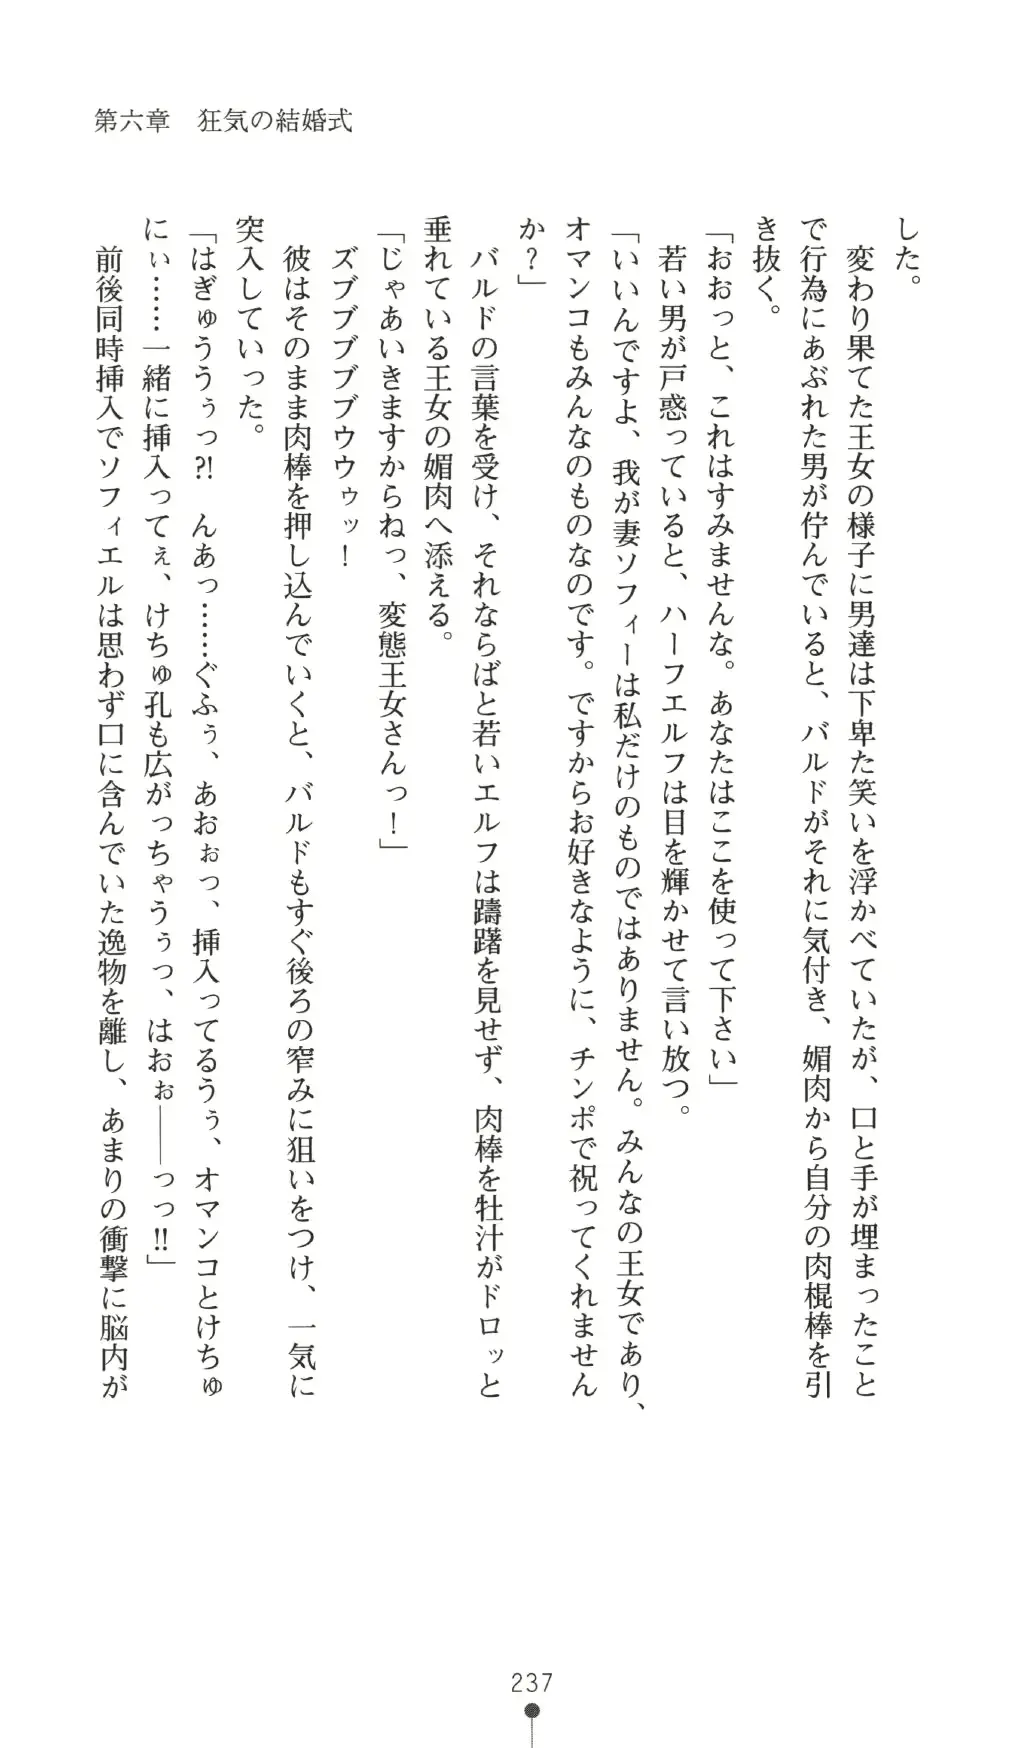 第六章　狂気の結婚式
した。
　変わり果てた王女の様子に男達は下卑た笑いを浮かべていたが、口と手が埋まったこと
で行為にあぶれた男が佇んでいると、バルドがそれに気付き、媚肉から自分の肉棍棒を引
き抜く。
「おおっと、これはすみませんな。あなたはここを使って下さい」
　若い男が戸惑っていると、ハーフエルフは目を輝かせて言い放つ。
「いいんですよ、我が妻ソフィーは私だけのものではありません。みんなの王女であり、
オマンコもみんなのものなのです。ですからお好きなように、チンポで祝ってくれません
か？」
　バルドの言葉を受け、それならばと若いエルフは躊躇を見せず、肉棒を牡汁がドロッと
垂れている王女の媚肉へ添える。
「じゃあいきますからねっ、変態王女さんっ！」
　ズブブブブブウウゥッ！
　彼はそのまま肉棒を押し込んでいくと、バルドもすぐ後ろの窄みに狙いをつけ、一気に
突入していった。
「はぎゅううぅっ?!　んあっ……ぐふぅ、あおぉっ、挿入ってるうぅ、オマンコとけちゅ
にぃ……一緒に挿入ってぇ、けちゅ孔も広がっちゃうぅっ、はおぉ――っっ!!」
　前後同時挿入でソフィエルは思わず口に含んでいた逸物を離し、あまりの衝撃に脳内が
237